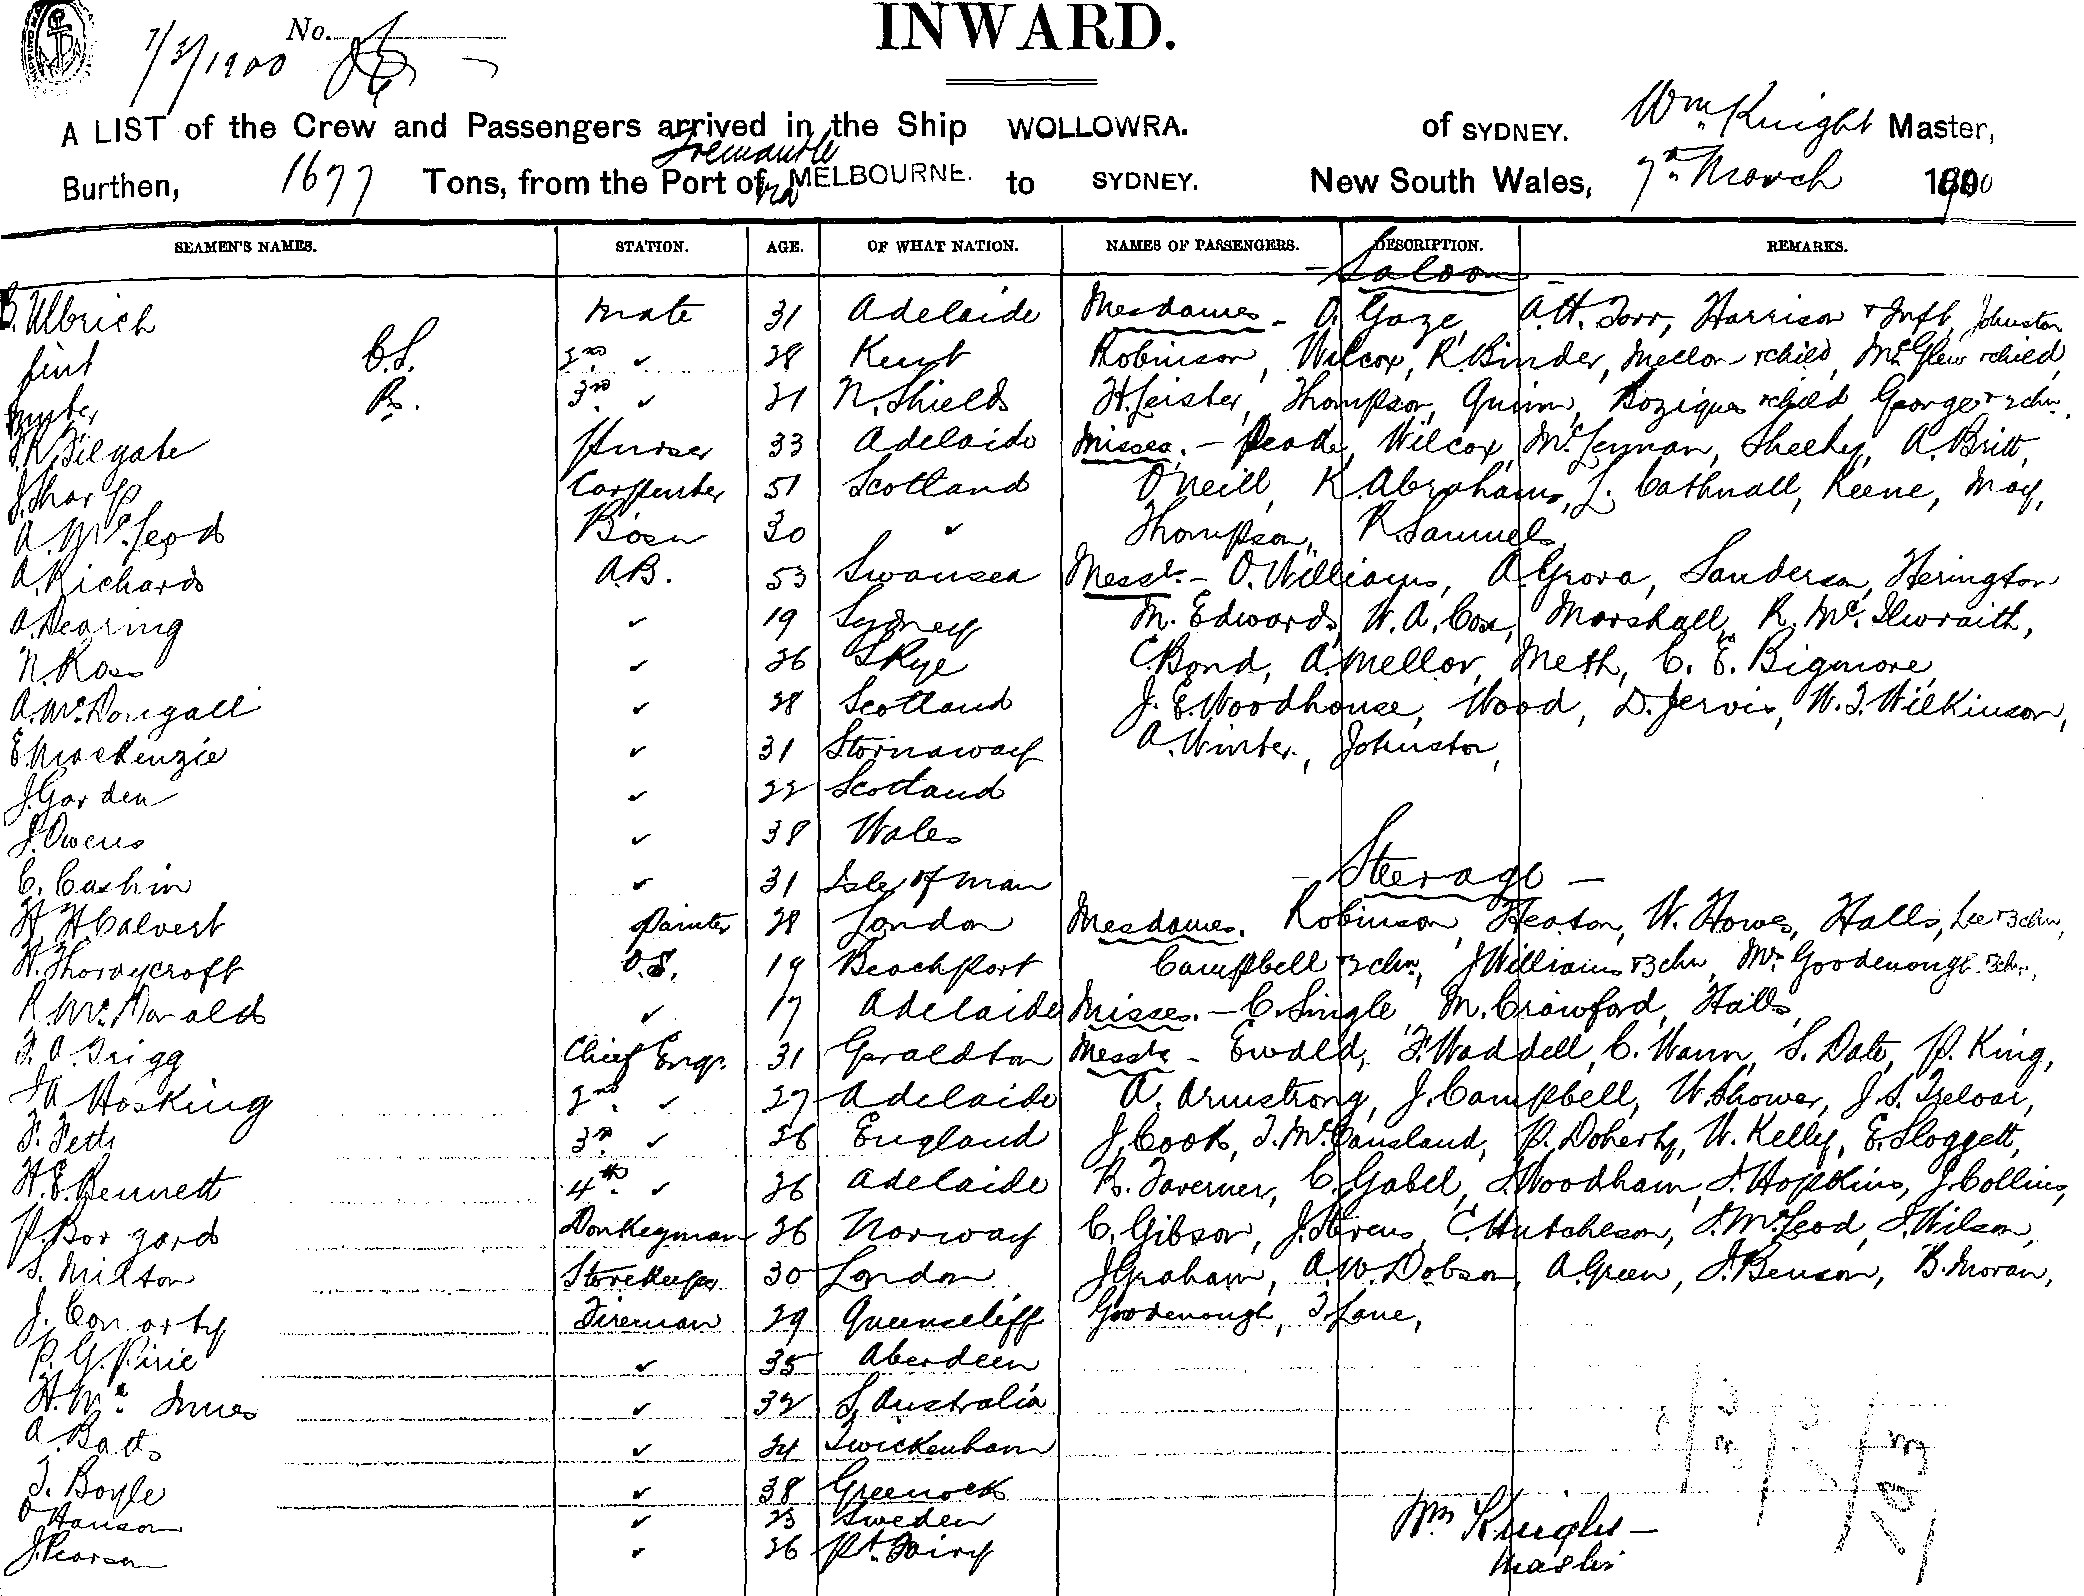 7/3/1900 No.
INWARD.
A LIST of the Crew and Passengers arrived in the Ship WOLLOWRA. of SYDNEY. Wm Knight Master,
Fremantle
Burthen, 1677 Tons, from the Port of via MELBOURNE. to SYDNEY. New South Wales, 7th March 1900
SEAMEN'S NAMES. STATION. AGE. OF WHAT NATION. NAMES OF PASSENGERS. DESCRIPTION. REMARKS.
- Saloon -
B. Ulbrich Mate 31 Adelaide Mesdames - O. Gaze, A.H. Torr, Harrison & Inft, Johnston
C.S. 2nd ✓ 28 Kent Robinson, Wilcox, R. Binder, Mellor & child, McGlew & child,
R. 3rd ✓ 21 N. Shields H. Leister, Thompson, Quinn, & child George & 2 chn,
Filgate Purser 33 Adelaide Misses. - Peade, Wilcox, McLennan, Sheehy, A. Britt,
J. Sharp Carpenter 51 Scotland O'Neill, K. Abrahams, L. Cathnall, Keene, May,
A. McLeod Bosn 30 ✓ Thompson, R. Samuels,
A. Richards A.B. 53 Swansea Messrs. - O. Williams, A. Grova, Sanderson, Herington
A. Dearing ✓ 19 Sydney M. Edwards, W.A. Cox, Marshall, R. McIlwraith,
N. Ross ✓ 26 Skye C. Bond, A. Mellor, Meth, C. E. Bigmore,
A. McDougall ✓ 28 Scotland J. E. Woodhouse, Wood, D. Jervis, W. T. Wilkinson,
E. Mackenzie ✓ 31 Stornaway A. Winter, Johnston,
J. Garden ✓ 22 Scotland
J. Owens ✓ 38 Wales
- Steerage -
C. Cashin ✓ 31 Isle of Man
H. H. Calvert Painter 28 London Mesdames. Robinson, Heaton, W. Howe, Halls, Lee & 3 chn,
H. Thornycroft O.S. 19 Beachport Campbell & 2 chn, J. Williams & 3 chn, Mrs Goodenough 3 chn,
R. McDonald ✓ 17 Adelaide Misses. - C. Single, M. Crawford, Halls,
F. A. Trigg Chief Engr. 31 Geraldton Messrs - Ewald, F. Waddell, C. Wann, S. Date, P. King,
Hosking 2nd ✓ 27 Adelaide A. Armstrong, J. Campbell, W. Shower, J. S. Treloar,
F. Fetts 3rd ✓ 26 England J. Cook, T. McCausland, P. Doherty, W. Kelly, E. Sloggett,
H. E. Bennett 4th ✓ 26 Adelaide R. Taverner, C. Gabel, J. Woodham, J. Hopkins, J. Collins,
P. Borgard Donkeyman 26 Norway C. Gibson, J. Stevens, C. Hutcheson, J. McLeod, J. Wilson,
S. Milton Storekeeper 30 London J. Graham, A. W. Dobson, A. Green, J. Benson, B. Moran,
J. Conorty Fireman 29 Queenscliff Goodenough, T. Lane,
P. G. Pirie ✓ 35 Aberdeen
H. McInnes ✓ 32 S. Australia
A. Batts ✓ 24 Twickenham
T. Boyle ✓ 38 Greenock
O Hanson ✓ 23 Sweden Wm Knight -
J. Pearson ✓ 26 Pt. Fairy Master